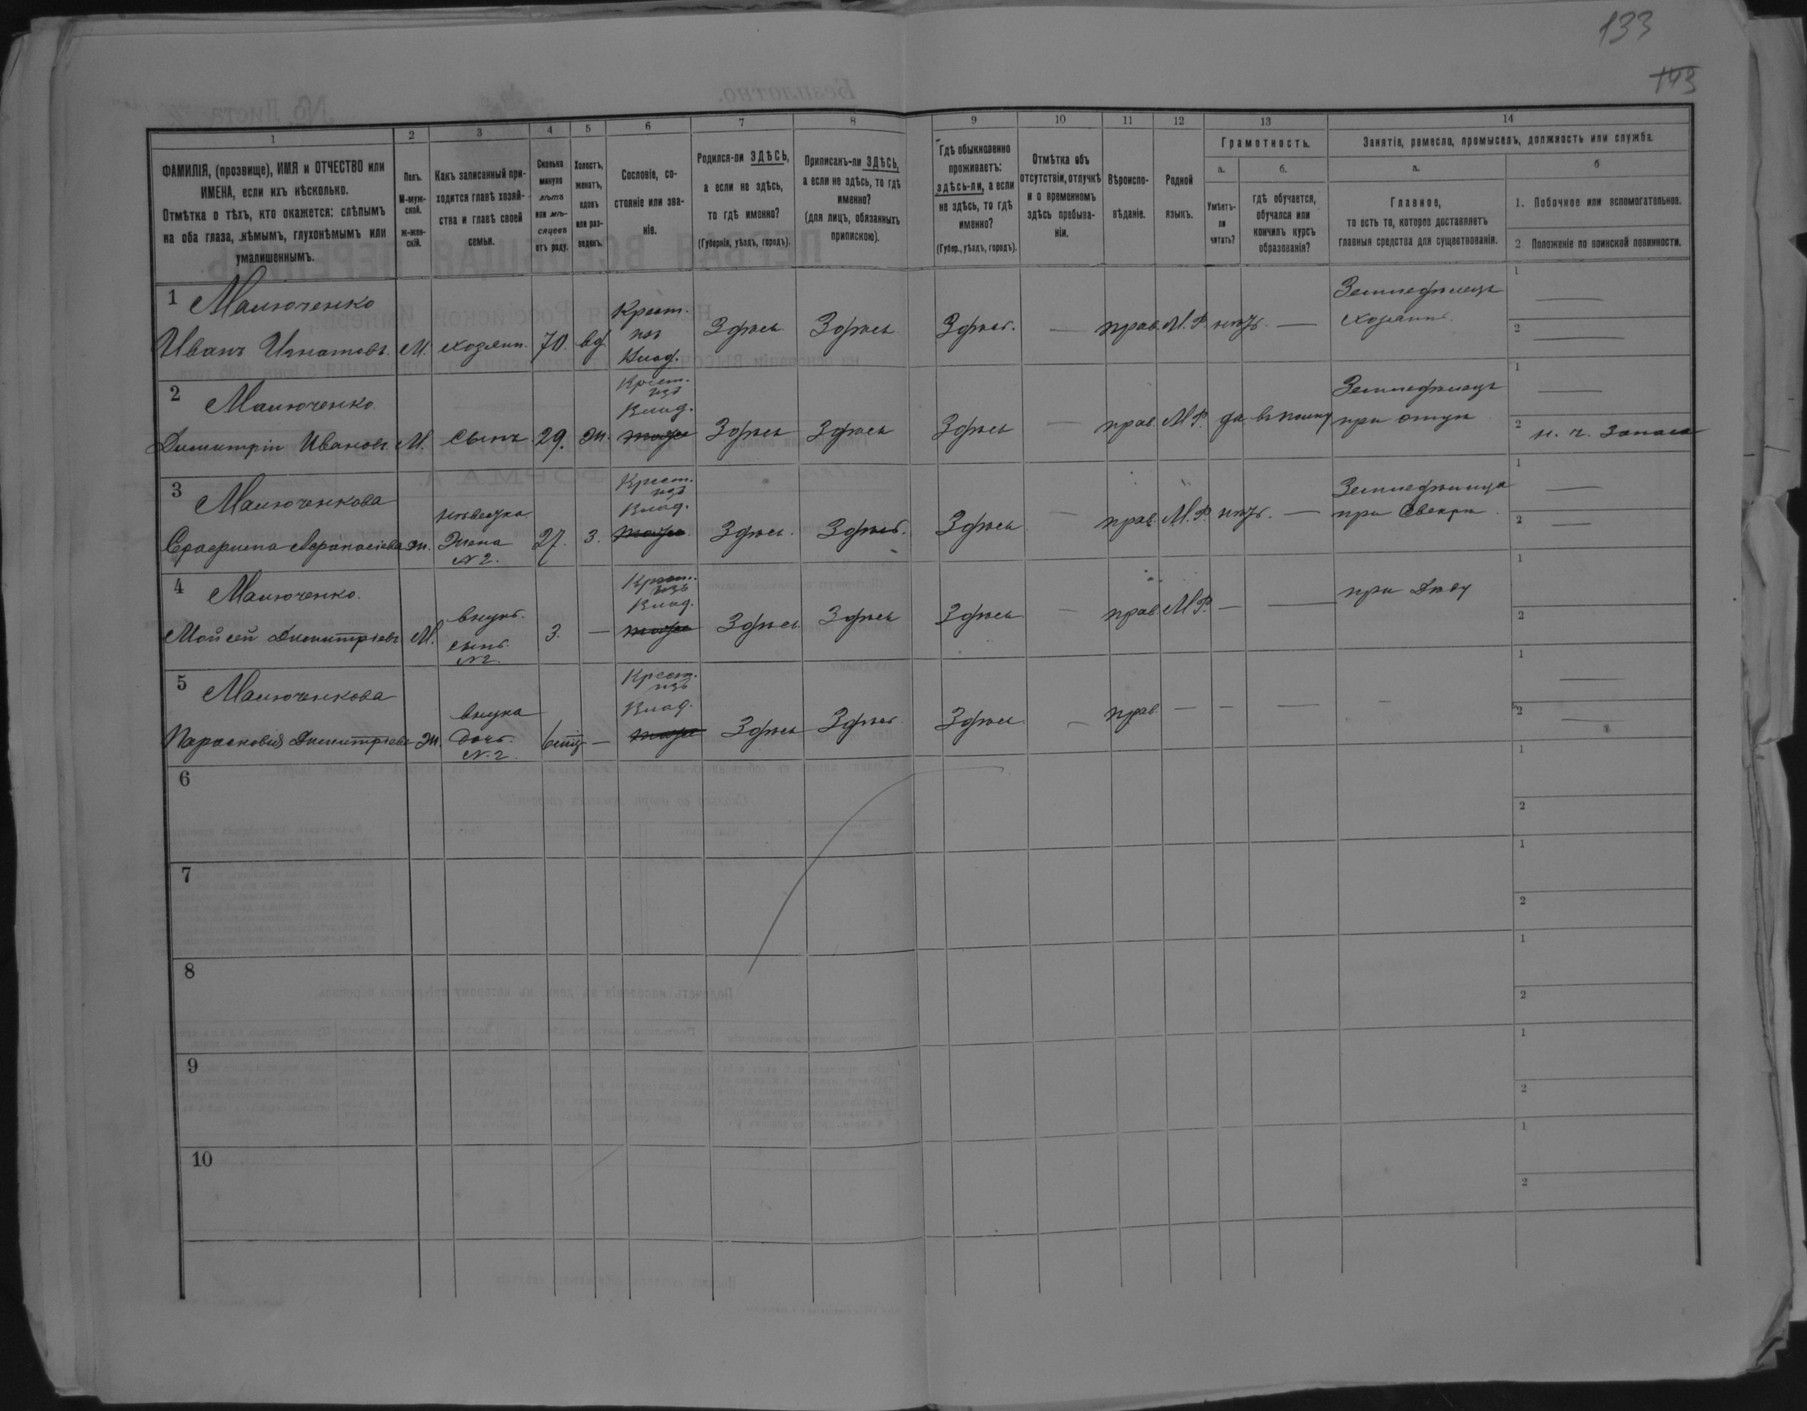 133
143
1 2 3 4 5 6 7 8 9 10 11 12 13 14
ФАМИЛІЯ, (прозвище), ИМЯ и ОТЧЕСТВО или
ИМЕНА, если ихъ нѣсколько.
Отмѣтка о тѣхъ, кто окажется: слѣпымъ
на оба глаза, нѣмымъ, глухонѣмымъ или
умалишеннымъ.
Полъ.
М-муж-
ской.
ж-жен-
скій.
Какъ записанный при-
ходится главѣ хозяй-
ства и главѣ своей
семьи.
Сколько
минуло
лѣтъ
или мѣ-
сяцевъ
отъ роду.
Холостъ,
женатъ,
вдовъ
или раз-
веденъ.
Сословіе, со-
стояніе или зва-
ніе.
Родился-ли ЗДѢСЬ,
а если не здѣсь,
то гдѣ именно?
(Губернія, уѣздъ, городъ).
Приписанъ-ли ЗДѢСЬ,
а если не здѣсь, то гдѣ
именно?
(для лицъ, обязанныхъ
припискою).
Гдѣ обыкновенно
проживаетъ:
здѣсь-ли, а если
не здѣсь, то гдѣ
именно?
(Губер., уѣздъ, городъ).
Отмѣтка объ
отсутствіи, отлучкѣ
и о временномъ
здѣсь пребыва-
ніи.
Вѣроиспо-
вѣданіе.
Родной
языкъ.
Грамотность.
а.
Умѣетъ-
ли
читать?
б.
гдѣ обучается,
обучался или
кончилъ курсъ
образованія?
Занятіе, ремесло, промыселъ, должность или служба.
а.
Главное,
то есть то, которое доставляетъ
главныя средства для существованія.
б
1. Побочное или вспомогательное.
2 Положеніе по воинской повинности.
1 Малюченко
Иванъ Игнатовъ М. хозяин. 70. вд. Крест. из Влад. Здѣсь Здѣсь Здѣсь. — прав. М. Р. нѣтъ. — Земледѣлецъ хозяинъ. 1 — 2 —
2 Малюченко
Димитрій Ивановъ М. сынъ 29. ж. Крест. изъ Влад. тоже Здѣсь Здѣсь Здѣсь — прав. М. Р. да Земледѣлецъ при отцѣ 1 — 2 н. ч. запаса
3 Малюченкова
ж. невѣстка жена №2. 27. з. Крест. изъ Влад. тоже Здѣсь Здѣсь. Здѣсь — прав. М. Р. нѣтъ. — при Свекрѣ 1 — 2 —
4 Малюченко.
Мойсей Димитріевъ М. внукъ. сынъ №2. 3. — Крест. изъ Влад. тоже Здѣсь Здѣсь Здѣсь — прав. М. Р. — — при дѣду 1 2
5 Малюченкова
Парасковія Димитріева ж. внука дочь. №2. — Крест. изъ Влад. тоже Здѣсь Здѣсь Здѣсь — прав — — — — 1 — 2 —
6 1 2
7 1 2
8 1 2
9 1 2
10 1 2